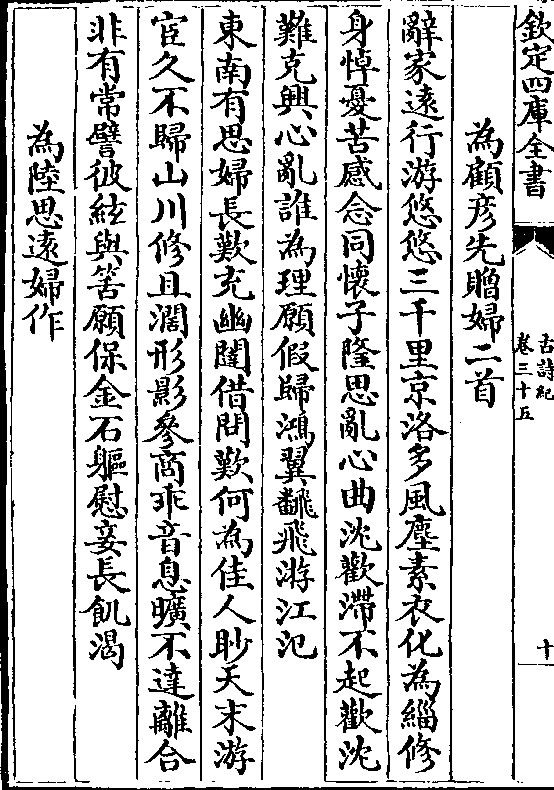 欽定四庫全書
古詩紀
卷三十五
十
為顧彦先贈婦二首
辭家遠行游悠悠三千里京洛多風塵素衣化為緇修
身悼憂苦感念同懷子隆思亂心曲沈歡滯不起歡沈
難克興心亂誰為理願假歸鴻翼飜飛游江汜
東南有思婦長歎充幽闥借問歎何為佳人眇天末游
宦久不歸山川修且濶形影參商乖音息曠不達離合
非有常譬彼絃與筈願保金石軀慰妾長飢渴
為陸思遠婦作